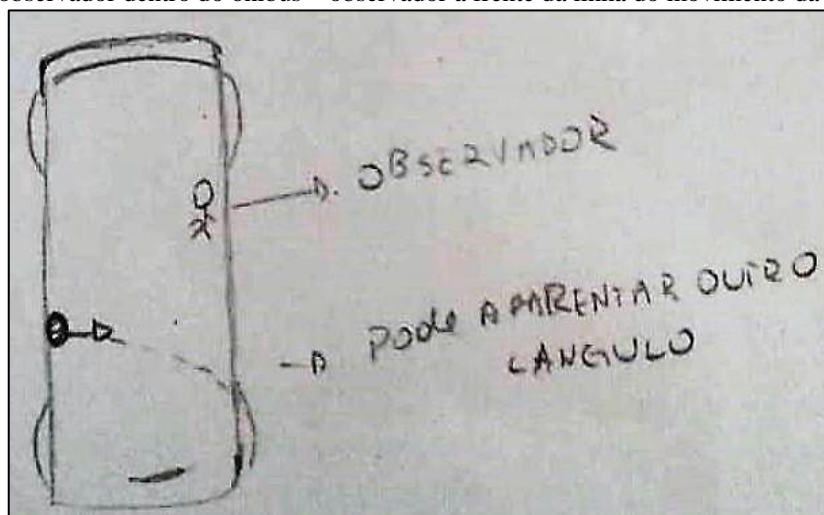 observador dentro do ônibus – observador à frente da linha do movimento da
OBSERVADOR
PODE APARENTAR OUTRO
ÂNGULO